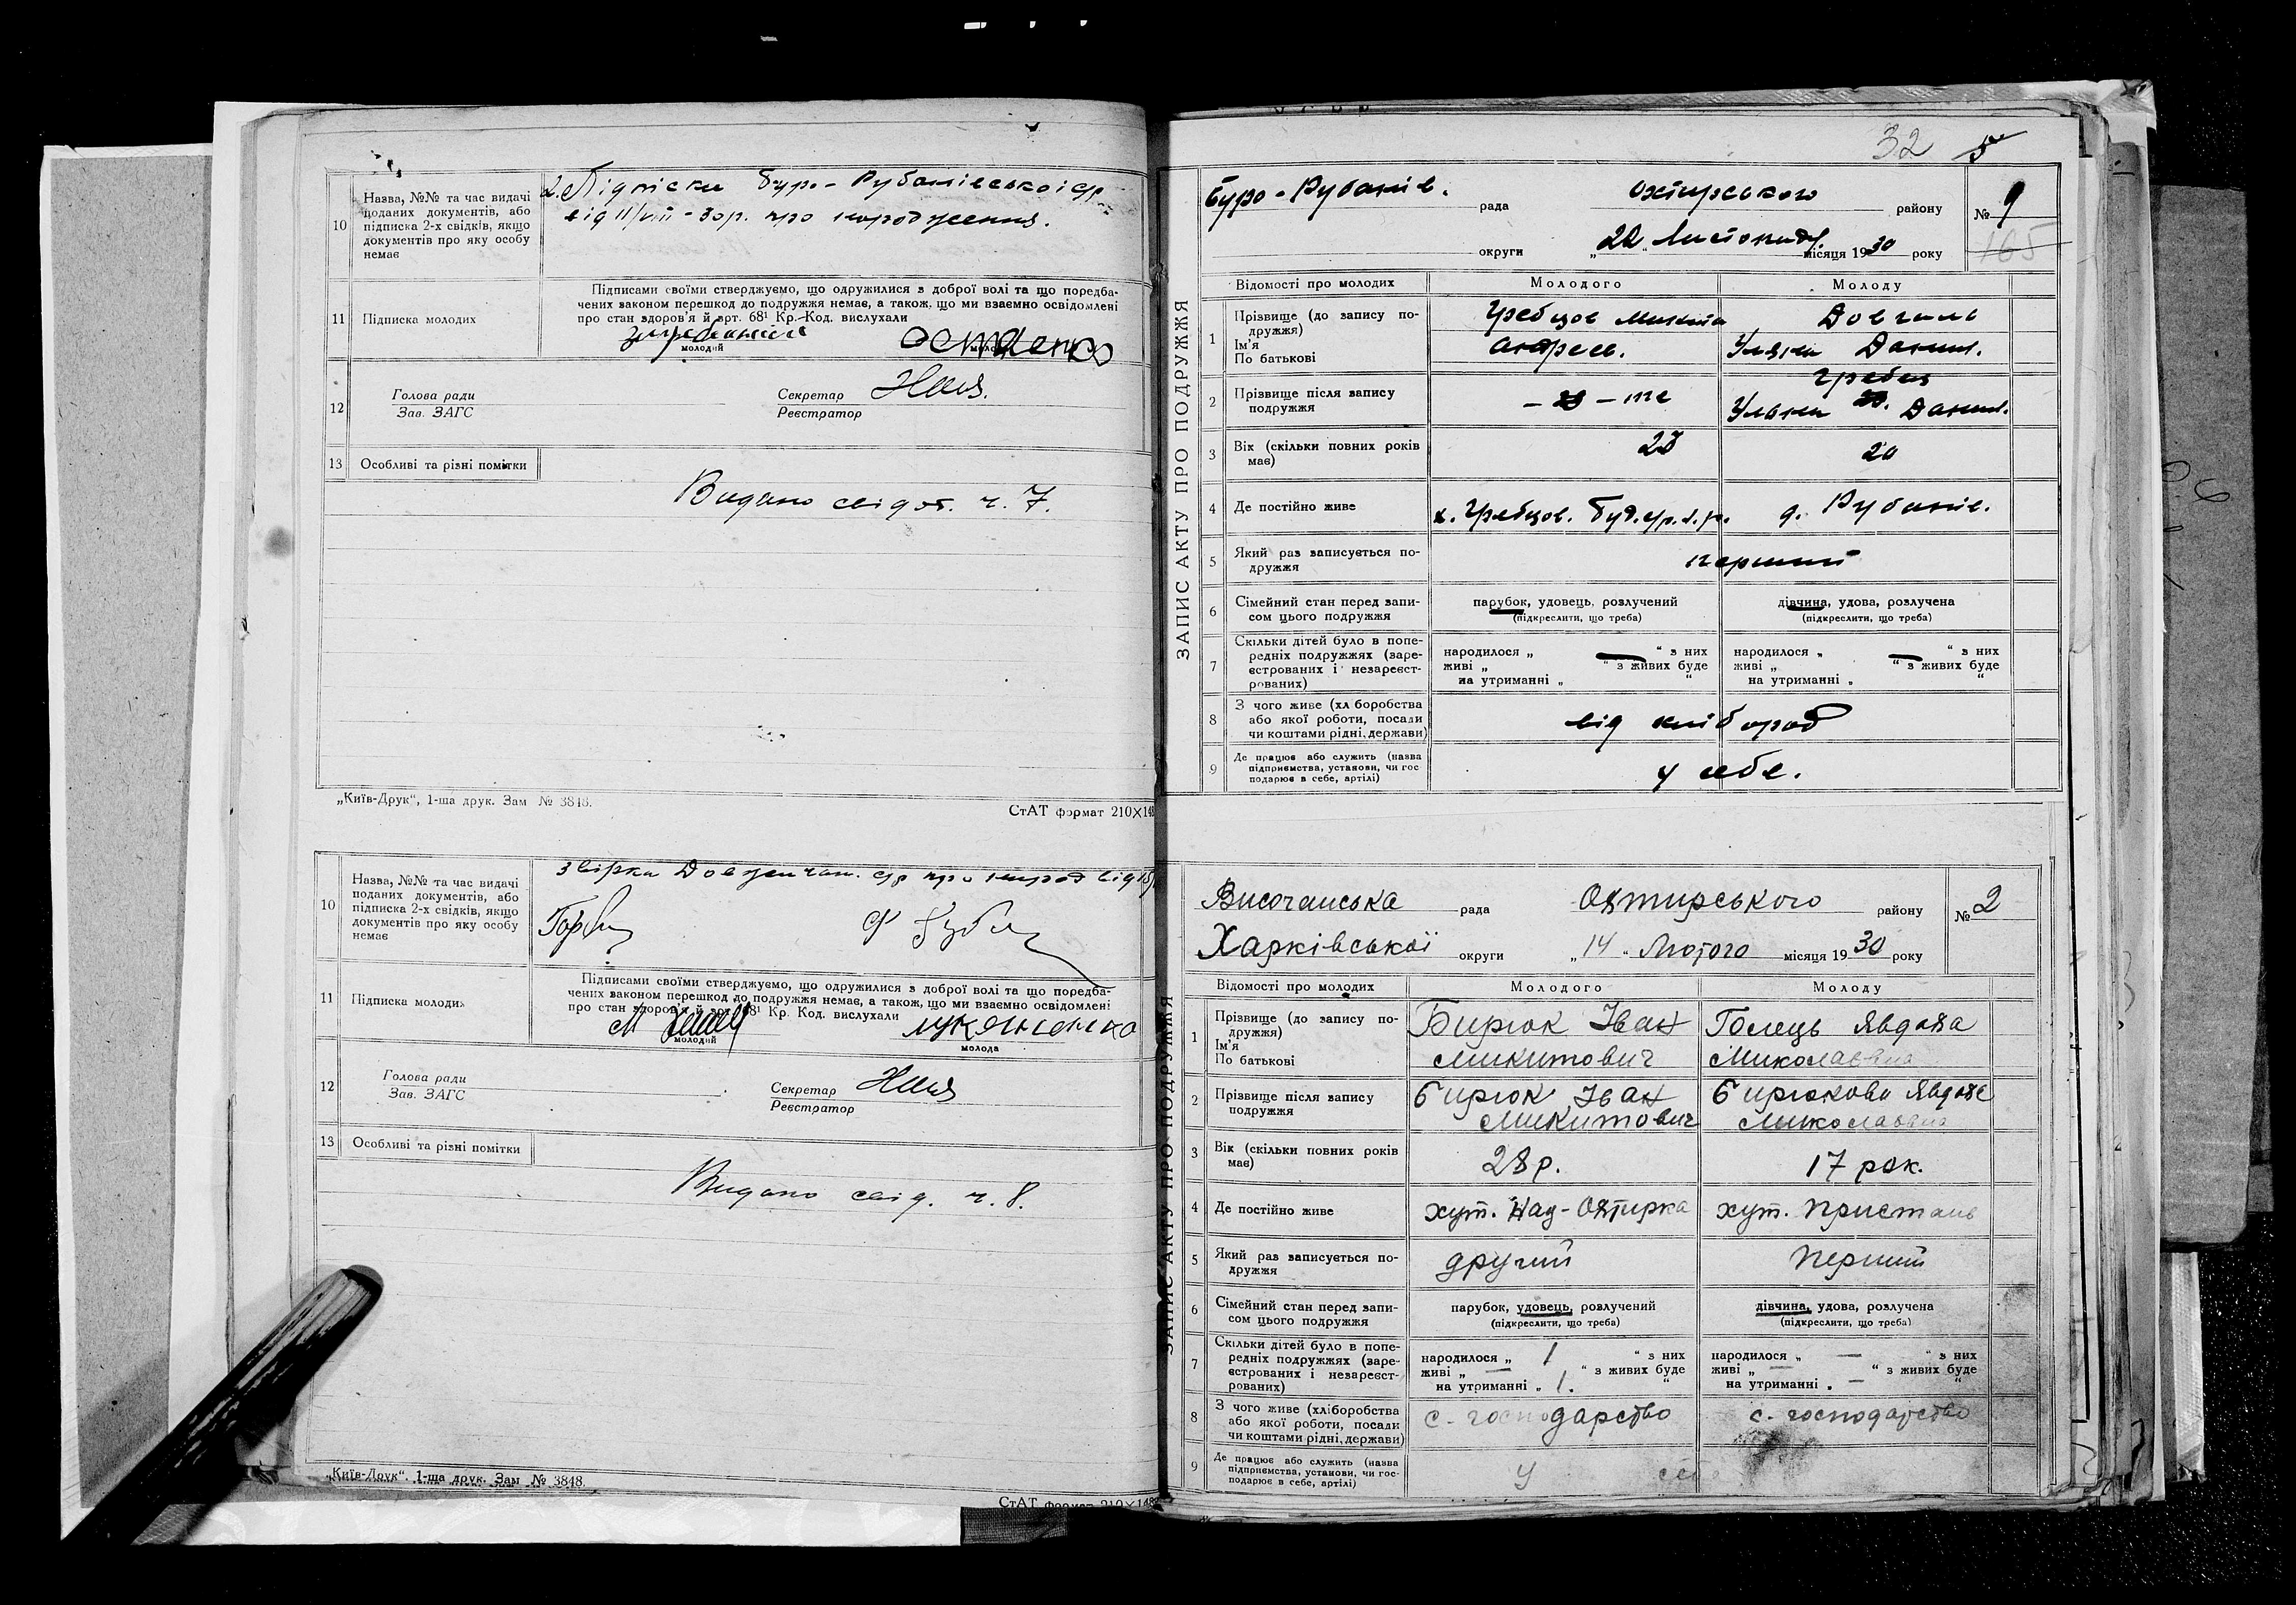 10 Назва, №№ та час видачі
поданих документів, або
підписка 2-х свідків, якщо
документів про яку особу
немає
2. Підписки Буро-Рубанівської с/р
від 11/VIII-30р. про народження.
11 Підписка молодих
Підписами своїми стверджуємо, що одружилися з доброї волі та що поредба-
чених законом перешкод до подружжя немає, а також, що ми взаємно освідомлені
про стан здоров'я й арт. 68¹ Кр. Код. вислухали
молодий
молода
12 Голова ради
Зав. ЗАГС
Секретар
Реєстратор
13 Особливі та різні помітки
Видано свідоц. ч. 7.
„Київ-Друк“, 1-ша друк. Зам № 3848.
СтАТ формат 210×148
10 Назва, №№ та час видачі
поданих документів, або
підписка 2-х свідків, якщо
документів про яку особу
немає
с/р про народ від
11 Підписка молодих
Підписами своїми стверджуємо, що одружилися з доброї волі та що поредба-
чених законом перешкод до подружжя немає, а також, що ми взаємно освідомлені
про стан здоров'я й арт. 68¹ Кр. Код. вислухали
молодий
молода
12 Голова ради
Зав. ЗАГС
Секретар
Реєстратор
13 Особливі та різні помітки
Видано свід. ч. 8.
„Київ-Друк“. 1-ша друк. Зам № 3848.
СтАТ формат 210×148
32 5
ЗАПИС АКТУ ПРО ПОДРУЖЖЯ
Буро-Рубанів. рада Охтирського району № 9
округи „22“ Листопада місяця 1930 року 165
Відомості про молодих Молодого Молоду
1 Прізвище (до запису по-
дружжя)
Ім'я
По батькові
Гребцов Микита
Андреев.
Довгаль
Уляна Данил.
2 Прізвище після запису
подружжя
- те
Гребця
Уляна Данил.
3 Вік (скільки повних років
має)
23
20
4 Де постійно живе
х. Гребцов. д. Рубанів.
5 Який раз записується по-
дружжя
перший
6 Сімейний стан перед запи-
сом цього подружжя
парубок, удовець, розлучений
(підкреслити, що треба)
дівчина, удова, розлучена
(підкреслити, що треба)
7 Скільки дітей було в попе-
редніх подружжях (заре-
єстрованих і незареєст-
рованих)
народилося „ — “ з них
живі „ “ з живих буде
на утриманні „ “
народилося „ — “ з них
живі „ “ з живих буде
на утриманні „ “
8 З чого живе (хліборобства
або якої роботи, посади
чи коштами рідні, держави)
від хлібороб
9 Де працює або служить (назва
підприємства, установи, чи гос
подарює в себе, артілі)
у себе.
ЗАПИС АКТУ ПРО ПОДРУЖЖЯ
Височанська рада Охтирського району № 2
Харківської округи „14“ Лютого місяця 1930 року
Відомості про молодих Молодого Молоду
1 Прізвище (до запису по-
дружжя)
Ім'я
По батькові
Бирюк Іван
Микитович
Голець Явдоха
Миколаєвна
2 Прізвище після запису
подружжя
Бирюк Іван
Микитович
Бирюкова Явдоха
Миколаєвна
3 Вік (скільки повних років
має)
28 р.
17 рок.
4 Де постійно живе
хут. Над-Охтирка
хут. Пристань
5 Який раз записується по-
дружжя
другий
перший
6 Сімейний стан перед запи-
сом цього подружжя
парубок, удовець, розлучений
(підкреслити, що треба)
дівчина, удова, розлучена
(підкреслити, що треба)
7 Скільки дітей було в попе-
редніх подружжях (заре-
єстрованих і незареєст-
рованих)
народилося „ 1 “ з них
живі „ — “ з живих буде
на утриманні „ 1. “
народилося „ — “ з них
живі „ — “ з живих буде
на утриманні „ — “
8 З чого живе (хліборобства
або якої роботи, посади
чи коштами рідні, держави)
с. господарство
с. господарство
9 Де працює або служить (назва
підприємства, установи, чи гос-
подарює в себе, артілі)
у себе